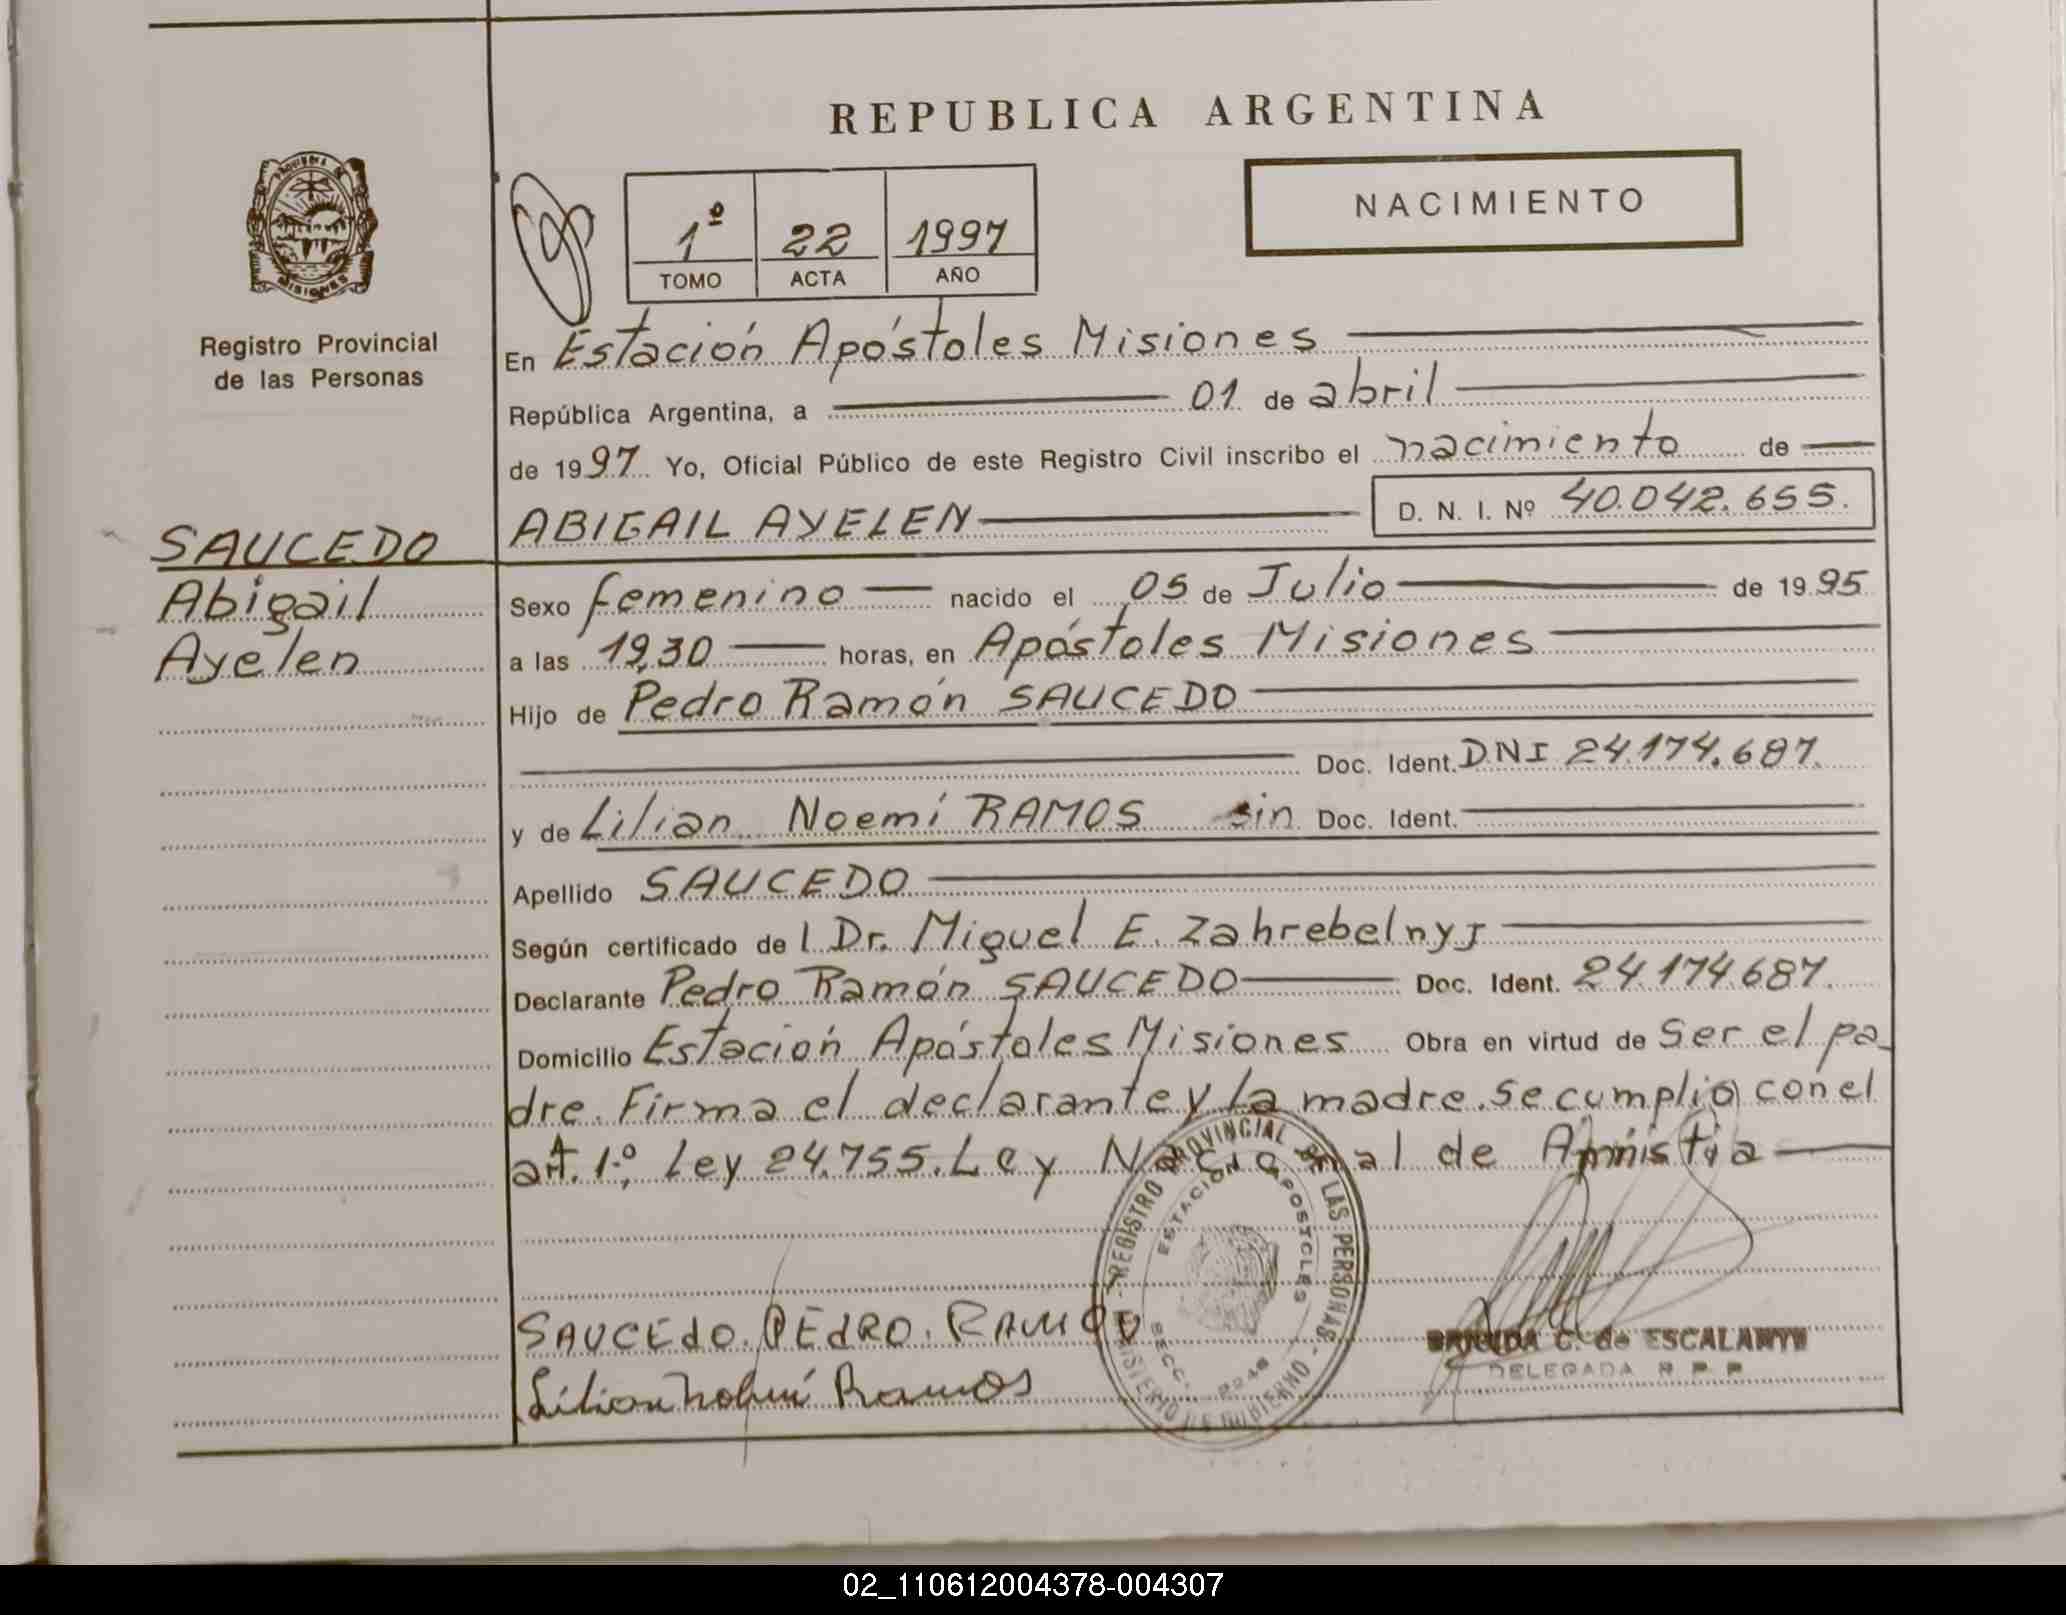 REPUBLICA ARGENTINA
PROVINCIA DE
MISIONES
Registro Provincial
de las Personas
1º 22 1997
TOMO ACTA AÑO
NACIMIENTO
En Estación Apóstoles Misiones
República Argentina, a 01 de abril
de 1997 Yo, Oficial Público de este Registro Civil inscribo el nacimiento de
ABIGAIL AYELEN D. N. I. Nº 40.042.655.
SAUCEDO
Abigail
Ayelen
Sexo femenino nacido el 05 de Julio de 1995
a las 19,30 horas, en Apóstoles Misiones
Hijo de Pedro Ramón SAUCEDO
Doc. Ident. DNI 24.174.687.
y de Lilian Noemí RAMOS sin Doc. Ident.
Apellido SAUCEDO
Según certificado de l Dr. Miguel E. Zahrebelnyj
Declarante Pedro Ramón SAUCEDO Doc. Ident. 24.174.687.
Domicilio Estación Apóstoles Misiones Obra en virtud de Ser el pa_
dre. Firma el declarante y la madre. Se cumplió con el
art. 1º, Ley 24.755. Ley Nacional de Amnistia
REGISTRO PROVINCIAL DE LAS PERSONAS
MINISTERIO DE GOBIERNO
ESTACION APOSTOLES
SECC. 2248
SAUCEdO. PEdRO. RAMON
Lilian Nohmí Ramos
BRIGIDA G. de ESCALANTE
DELEGADA R. P. P.
02_110612004378-004307